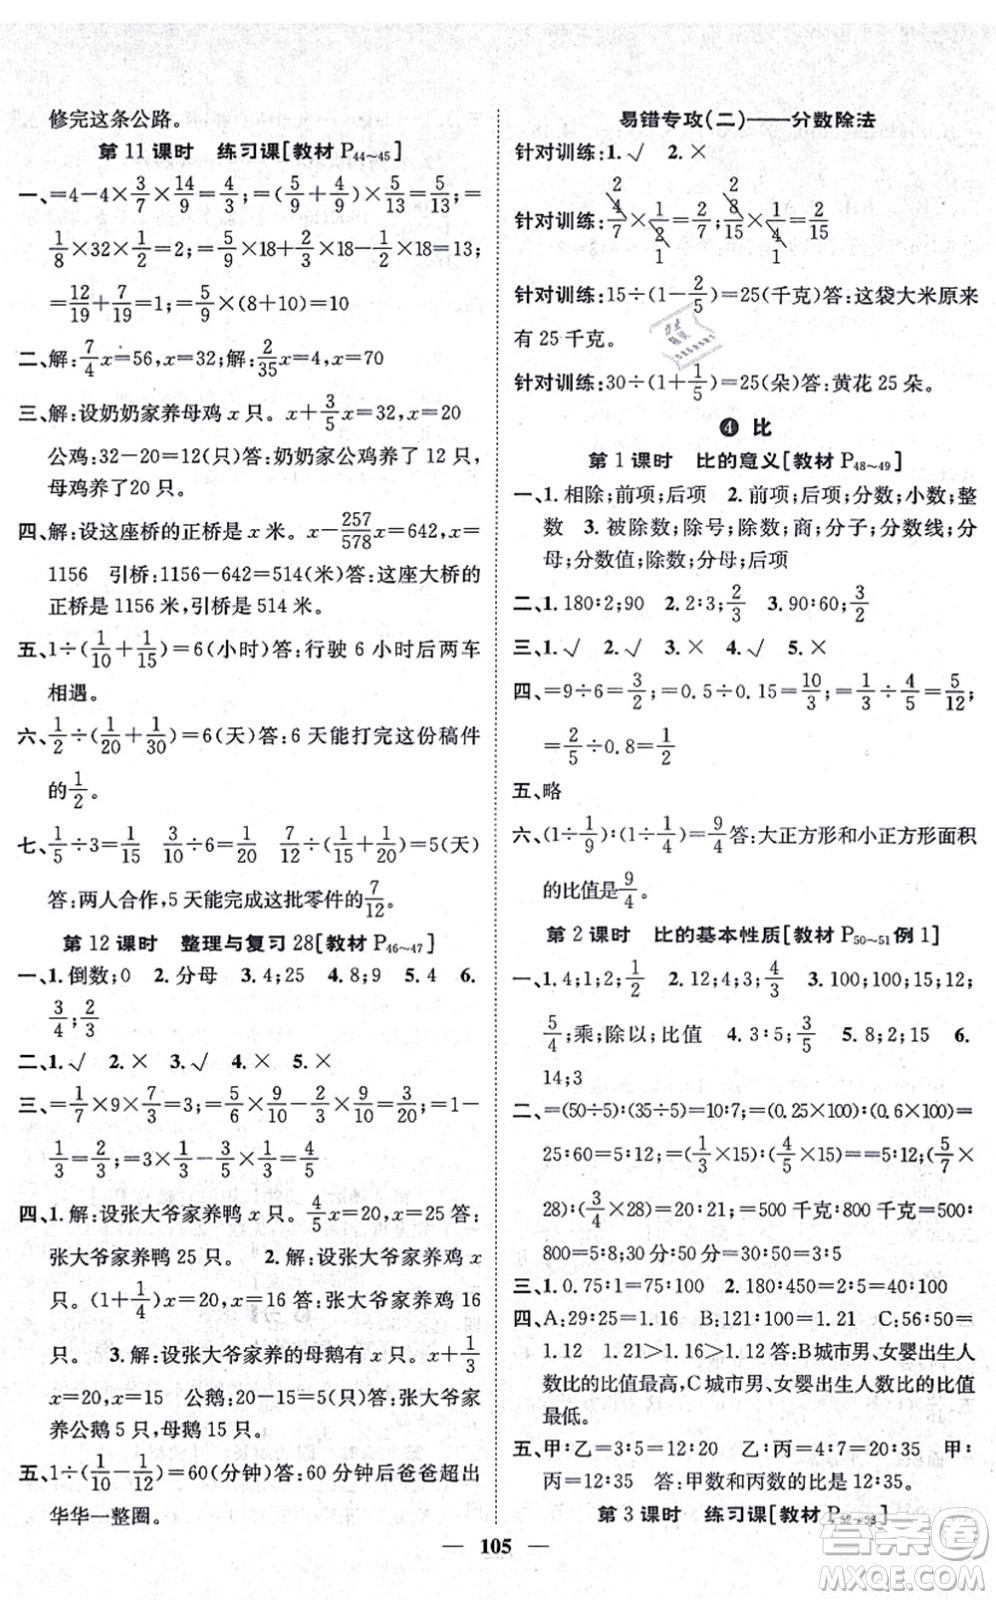 修完这条公路。
第 11 课时　练习课[教材 P44~45]
一、=4-4×3/7×14/9=4/3;=(5/9+4/9)×5/13=5/13;=
1/8×32×1/2=2;=5/9×18+1/2×18-1/2×18=13;
=12/19+7/19=1;=5/9×(8+10)=10
二、解:7/4x=56,x=32;解:2/35x=4,x=70
三、解:设奶奶家养母鸡 x 只。x+3/5x=32,x=20
公鸡:32-20=12(只)答:奶奶家公鸡养了 12 只,
母鸡养了20 只。
四、解:设这座桥的正桥是 x 米。x-257/578x=642,x=
1156　引桥:1156-642=514(米)答:这座大桥的
正桥是 1156 米,引桥是 514 米。
五、1÷(1/10+1/15)=6(小时)答:行驶 6 小时后两车
相遇。
六、1/2÷(1/20+1/30)=6(天)答:6 天能打完这份稿件
的1/2。
七、1/5÷3=1/15　3/10÷6=1/20　7/12÷(1/15+1/20)=5(天)
答:两人合作,5 天能完成这批零件的7/12。
第 12 课时　整理与复习 28[教材 P46~47]
一、1.倒数;0　2.分母　3.4;25　4.8;9　5.4　6.
3/4;2/3
二、1.√　2.×　3.×　4.×　5.×
三、=1/7×9×7/3=3;=5/6×9/10-2/3×9/10=3/20;=1-
1/3=2/3;=3×1/15=1/5
四、1.解:设张大爷家养鸭 x 只。4/5x=20,x=25 答:
张大爷家养鸭 25 只。　2.解:设张大爷家养鸡 x
只。(1+1/4)x=20,x=16 答:张大爷家养鸡 16
只。　3.解:设张大爷家养的母鹅有 x 只。x+1/3
x=20,x=15　公鹅:20-15=5(只)答:张大爷家
养公鹅 5 只,母鹅 15 只。
五、1÷(1/10-1/12)=60(分钟)答:60 分钟后爸爸超出
华华一整圈。
易错专攻(二)——分数除法
针对训练:1.√　2.×
针对训练:4/7×1/2=2/7;8/15×1/4=2/15
针对训练:15÷(1-2/5)=25(千克)答:这袋大米原来
有 25 千克。
针对训练:30÷(1+1/5)=25(朵)答:黄花 25 朵。
4 比
第 1 课时　比的意义[教材 P48~49]
一、1.相除;前项;后项　2.前项;后项;分数;小数;整
数　3.被除数;除号;除数;商;分子;分数线;分
母;分数值;除数;分母;后项
二、1.180∶2;90　2.2∶3;2/3　3.90∶60;3/2
三、1.√　2.×　3.×　4.√　5.×
四、=9÷6=3/2;=0.5÷0.15=10/3;=1/3÷4/5=5/12;
=2/5÷0.8=1/2
五、略
六、(1÷1/9)∶(1÷1/4)=9/4答:大正方形和小正方形面积
的比值是9/4。
第 2 课时　比的基本性质[教材 P50~51例 1]
一、1.4;1;2;1/2　2.12;4;4/3　3.100;100;15;12;
5/4;乘;除以;比值　4.3∶5;3/5　5.12;15　6.
14;3
二、=(50÷5)∶(35÷5)=10∶7;=(0.25×100)∶(0.6×100)=
25∶60=5∶12;=(1/3×15)∶(4/5×15)=5∶12;(5/7×
28)∶(3/4×28)=20∶21;=500 千克∶800 千克=500∶
800=5∶8;=50 分∶30 分=50∶30=5∶3
三、1.0.75∶1=75∶100　2.180∶450=2∶5=40∶100
四、A:29∶25=1.16　B:121∶100=1.21　C:56∶50=
1.12　1.21>1.16>1.12 答:B 城市男、女婴出生人
数比的比值最高,C 城市男、女婴出生人数比的比值
最低。
五、甲∶乙=3∶5=12∶20　乙∶丙=4∶7=20∶35　甲∶
丙=12∶35　答:甲数和丙数的比是 12∶35。
第 3 课时　练习课[教材 P52~53]
— 105 —
答案圈
MXQE.COM